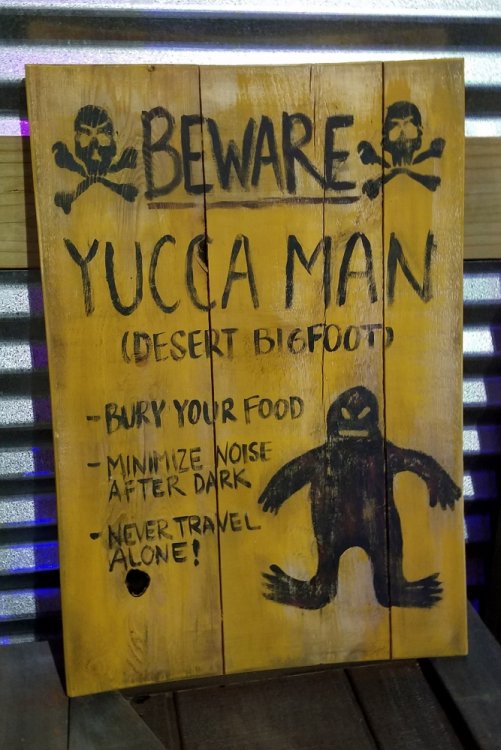 BEWARE
YUCCA MAN
(DESERT BIGFOOT)
- BURY YOUR FOOD
- MINIMIZE NOISE
AFTER DARK
- NEVER TRAVEL
ALONE!